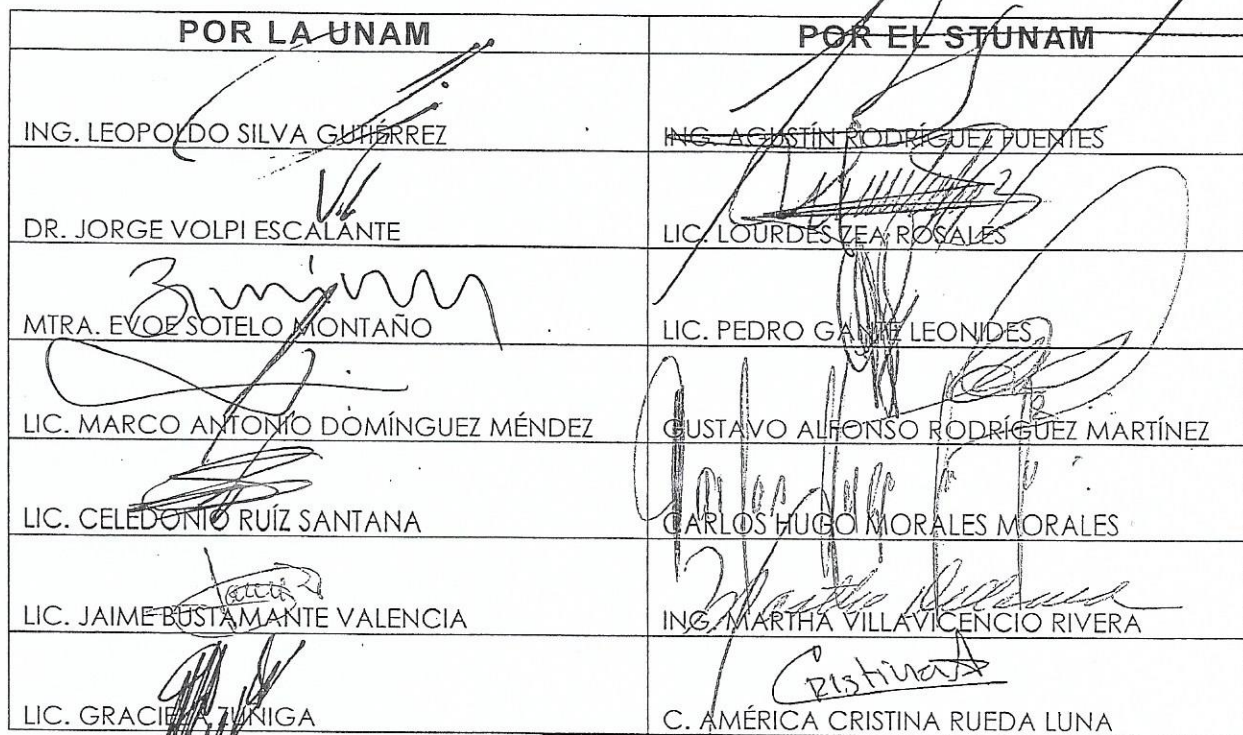 POR LA UNAM
POR EL STUNAM
ING. LEOPOLDO SILVA GUTIÉRREZ
ING. AGUSTÍN RODRÍGUEZ FUENTES
DR. JORGE VOLPI ESCALANTE
LIC. LOURDES ZEA ROSALES
MTRA. EVOE SOTELO MONTAÑO
LIC. PEDRO GANTE LEONIDES
LIC. MARCO ANTONIO DOMÍNGUEZ MÉNDEZ
GUSTAVO ALFONSO RODRÍGUEZ MARTÍNEZ
LIC. CELEDONIO RUÍZ SANTANA
CARLOS HUGO MORALES MORALES
LIC. JAIME BUSTAMANTE VALENCIA
ING. MARTHA VILLAVICENCIO RIVERA
Cristina
LIC. GRACIELA ZUÑIGA
C. AMÉRICA CRISTINA RUEDA LUNA